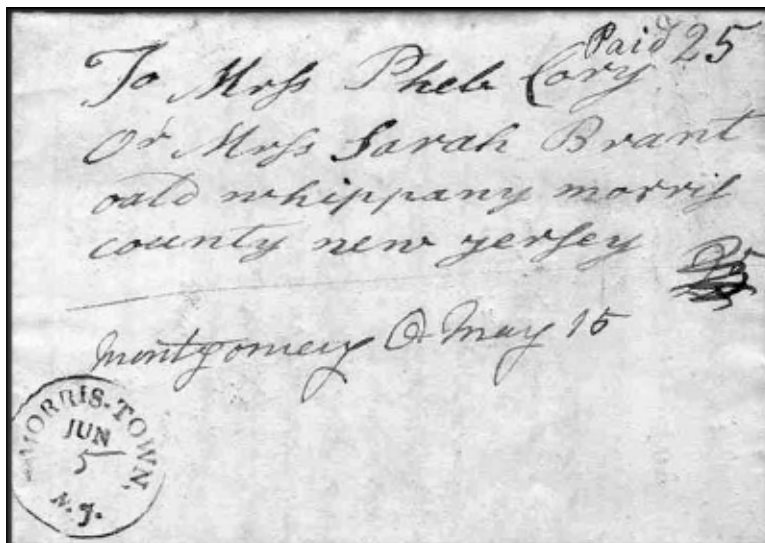 Paid 25
To Mrss Pheb Cory
Or Mrss Sarah Brant
oald whippany morris
county new jersey
montgomery O May 15
MORRIS-TOWN,
JUN
5
N.J.